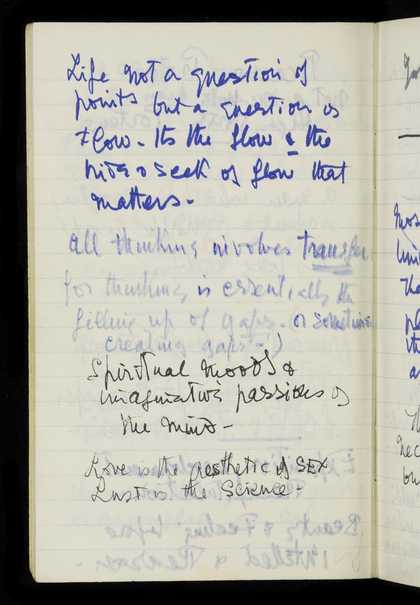 Life not a question of
points but a question of
flow - Its the flow & the
hide & seek of flow that
matters -
All thinking involves transfer
for thinking is essentially the
filling up of gaps. (or sometimes
creating gaps -!)
Spiritual moods &
imaginative passions of
the mind -
Love is the aesthetic of SEX
Lust is the Science.